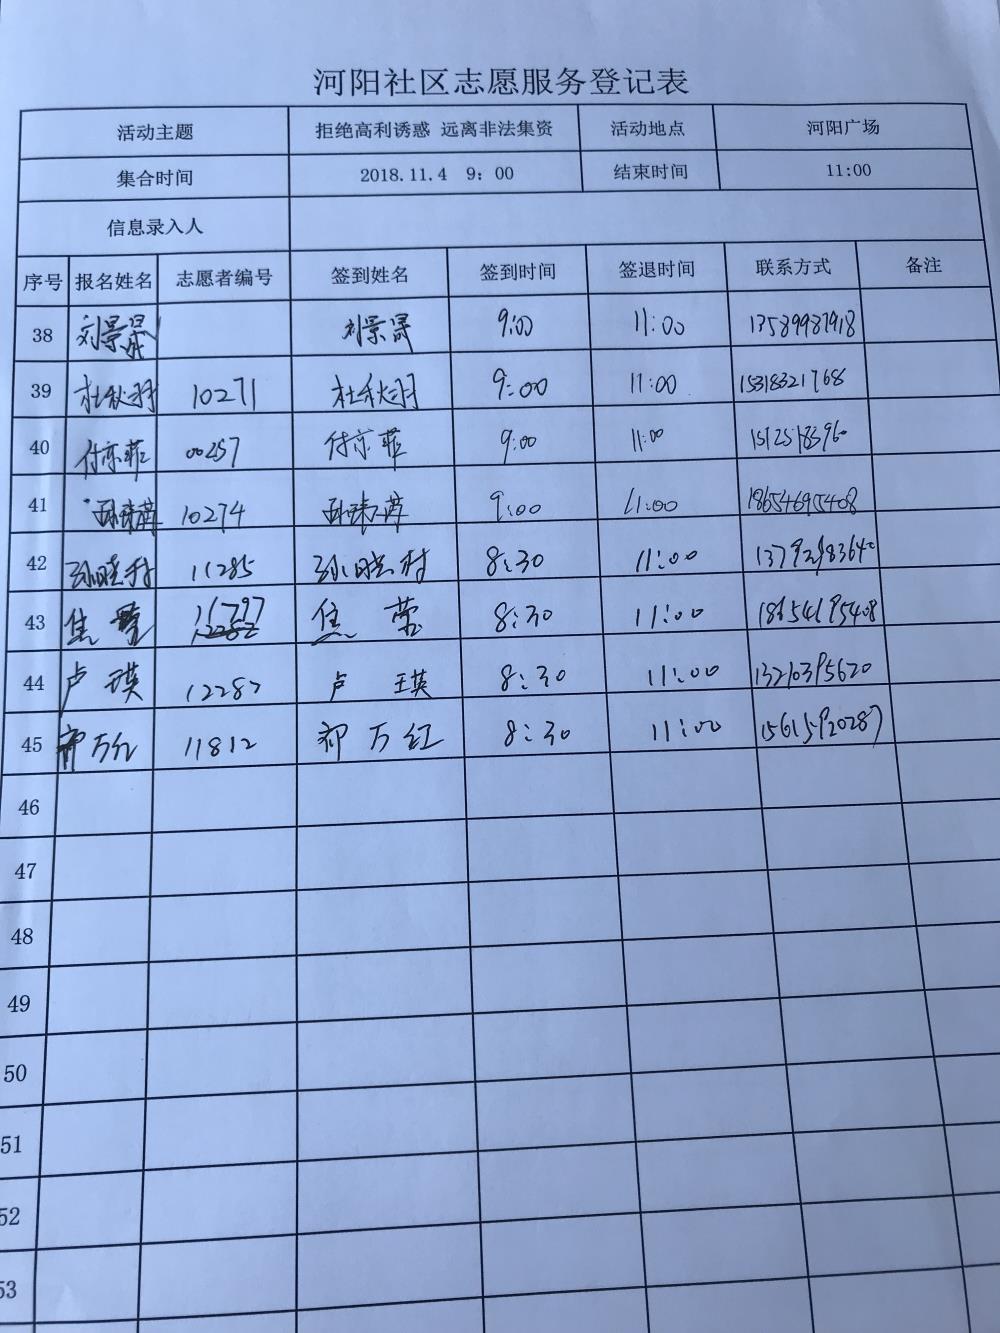 河阳社区志愿服务登记表
活动主题 拒绝高利诱惑 远离非法集资 活动地点 河阳广场
集合时间 2018.11.4 9：00 结束时间 11:00
信息录入人
序号 报名姓名 志愿者编号 签到姓名 签到时间 签退时间 联系方式 备注
38 刘景晟 刘景晟 9:00 11:00 13589987918
39 杜秋羽 10271 杜秋羽 9:00 11:00 15318321768
40 付京菲 00257 付京菲 9:00 11:00
41 10274 9:00 11:00 18654695408
42 孙晓村 11285 孙晓村 8:30 11:00
43 焦 焦 荣 8:30 11:00
44 卢 瑛 12282 卢 瑛 8:30 11:00 13210395620
45 祁万红 11812 祁万红 8:30 11:00 15615920287
46
47
48
49
50
51
52
53